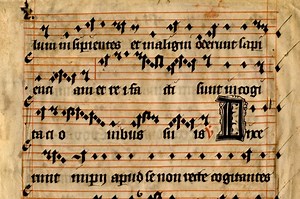 lum insipientes et maligni decerunt sapi
enci am et re i fa cti sunt in cogi
ta ci o nibus su is Dixe
runt impii apud se non recte cogitantes